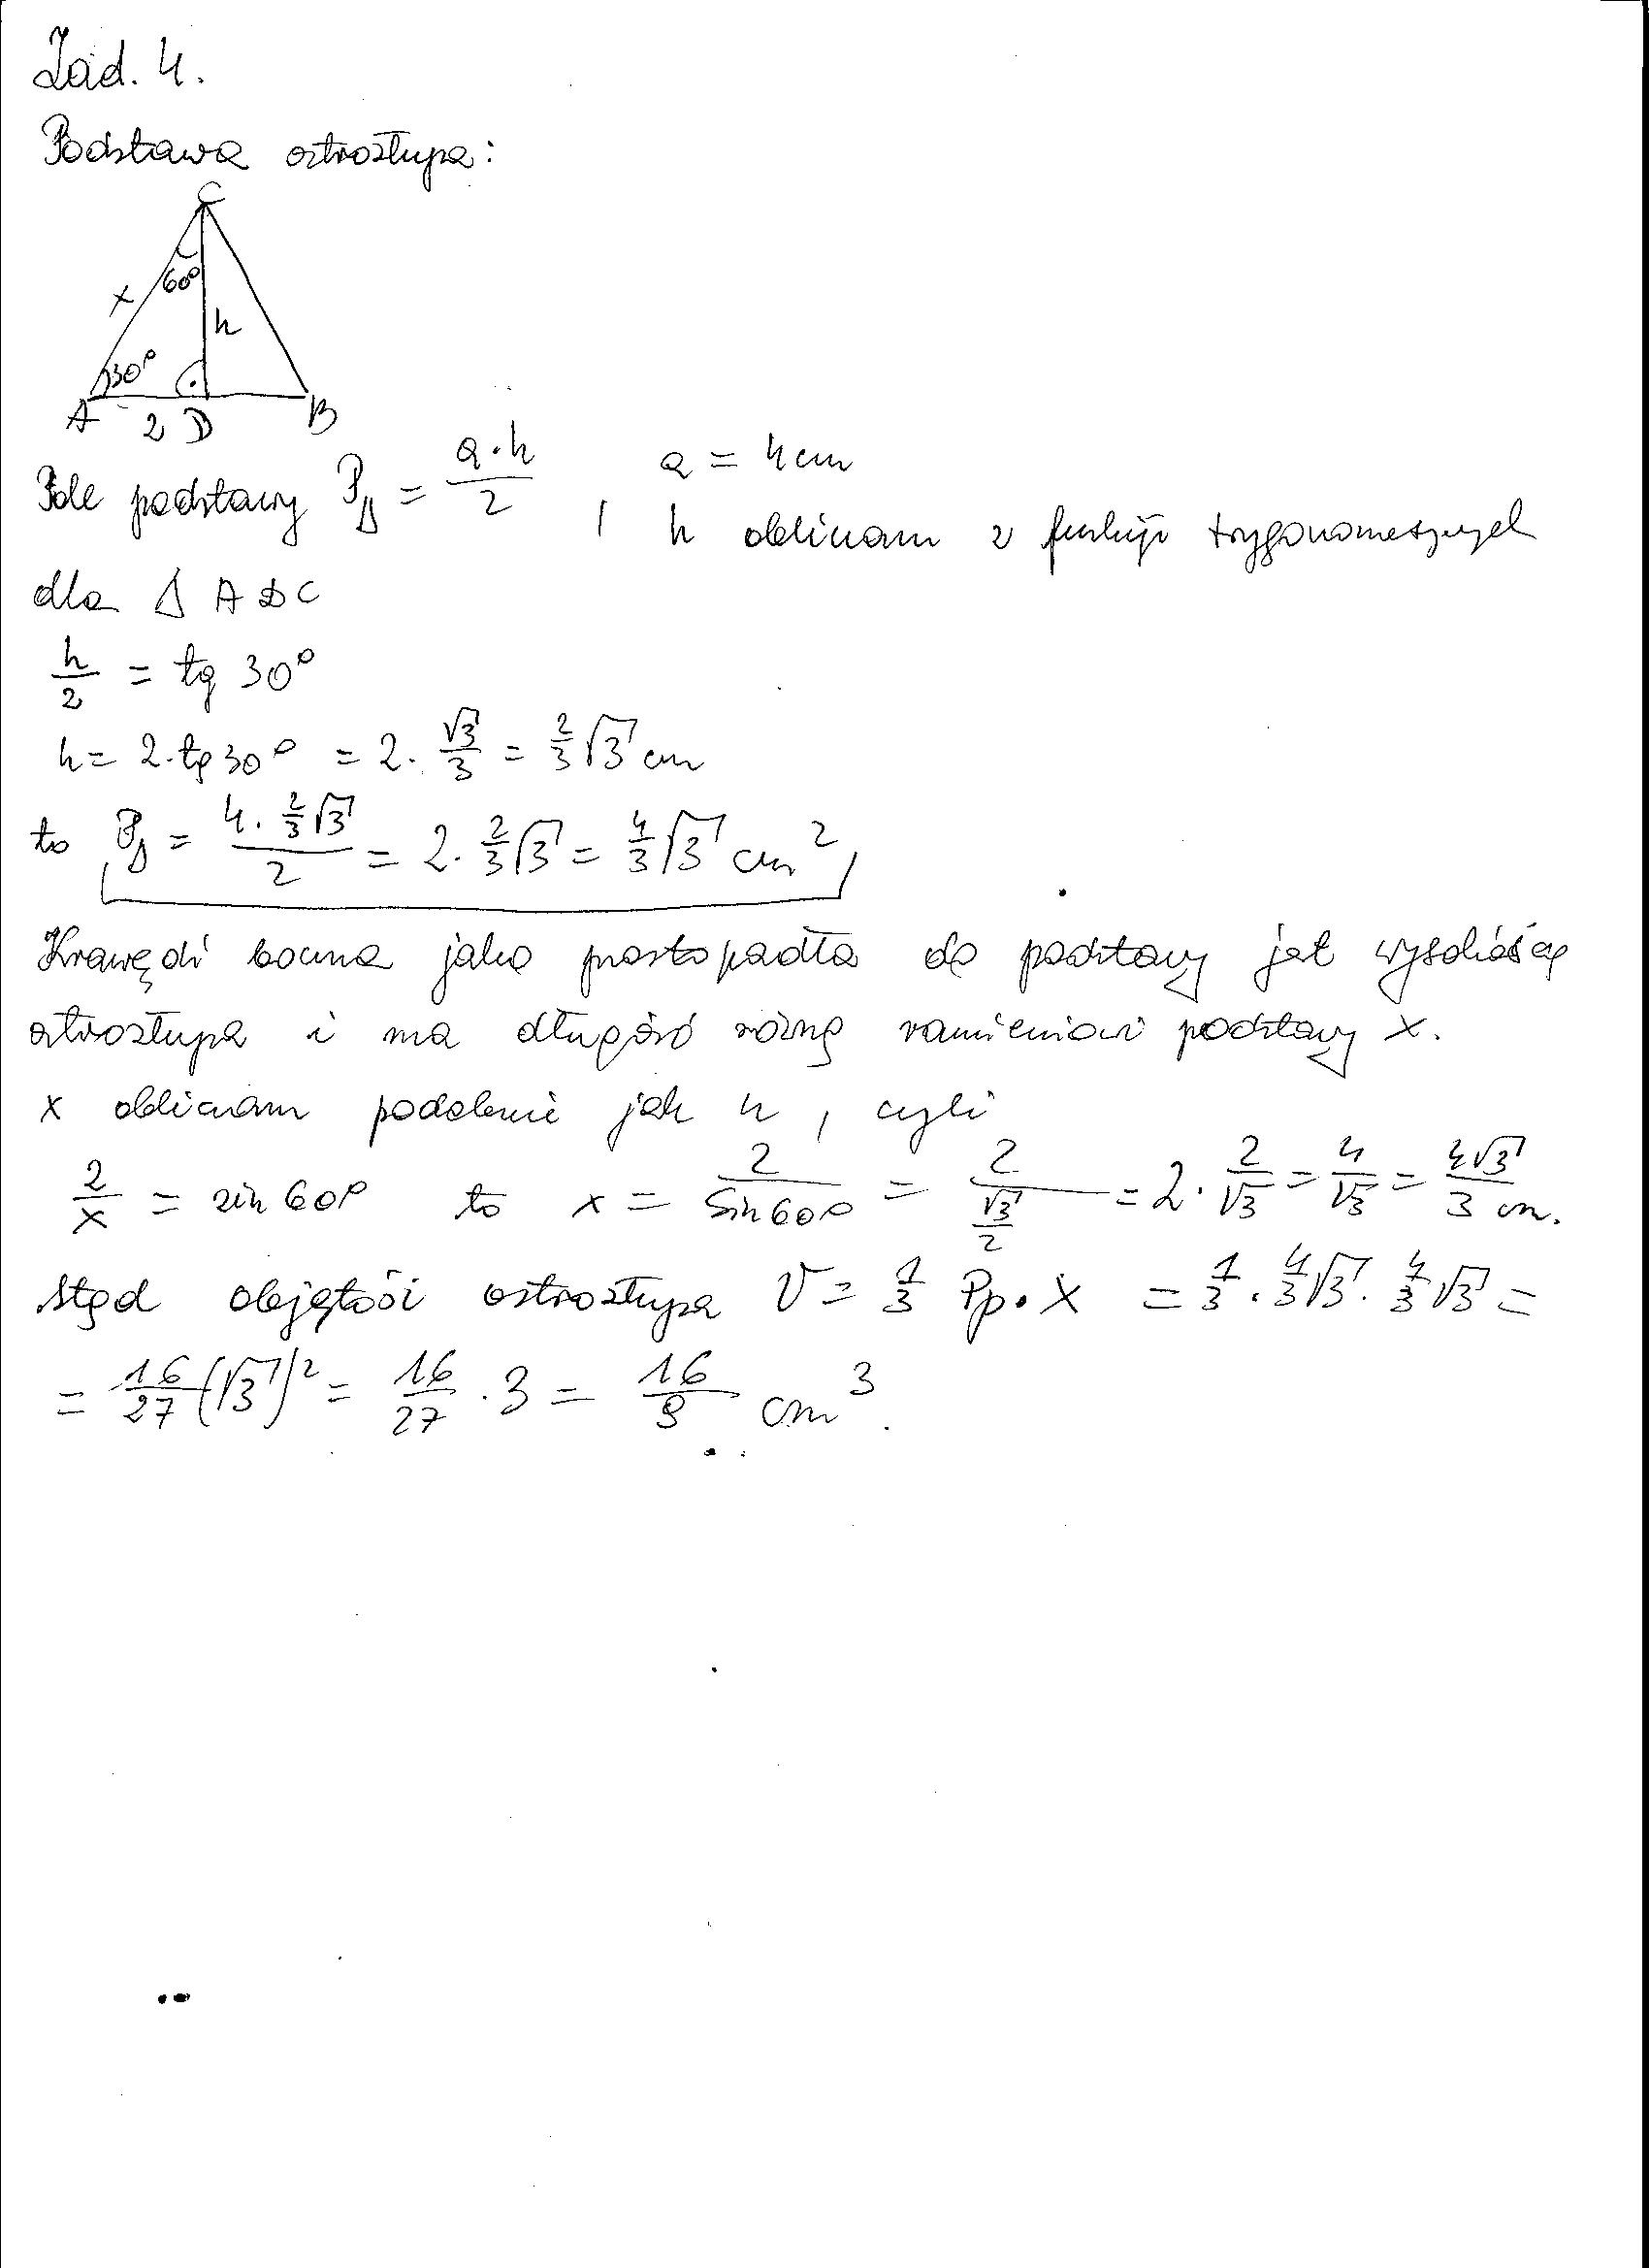 Zad. 4.
Podstawa ostrosłupa:
C
60°
x
h
30°
A 2 D B
Pole podstawy P△ = a·h/2 , a = 4 cm
h obliczam z funkcji trygonometrycznych
dla △ ADC
h/2 = tg 30°
h = 2·tg 30° = 2·√3/3 = 2/3 √3 cm
to P△ = (4·2/3 √3)/2 = 2·2/3 √3 = 4/3 √3 cm²
Krawędź boczna jako prostopadła do podstawy jest wysokością
ostrosłupa i ma długość równą ramieniowi podstawy x.
x obliczam podobnie jak h, czyli
2/x = sin 60° to x = 2/sin 60° = 2/(√3/2) = 2·2/√3 = 4/√3 = 4√3/3 cm.
Stąd objętość ostrosłupa V = 1/3 Pp·x = 1/3·4/3 √3·4/3 √3 =
= 16/27 (√3)² = 16/27·3 = 16/9 cm³.